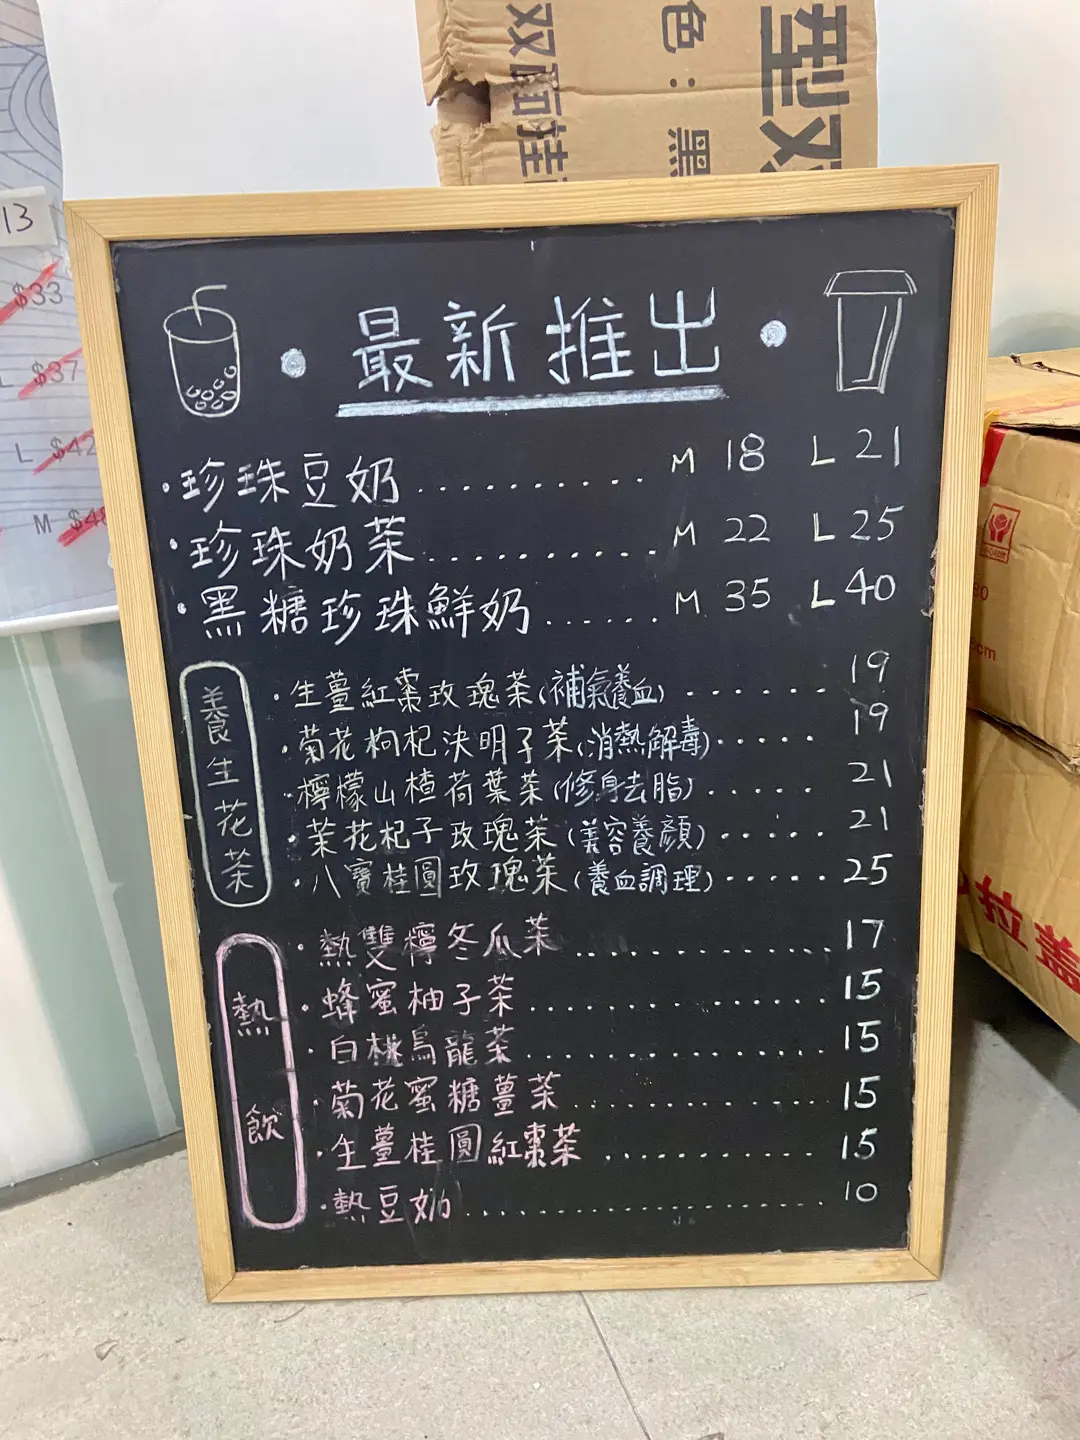 双面挂
色：黑
型双
13
$33
L $37
L $42
M $48
最新推出
·珍珠豆奶.......... M 18 L 21
·珍珠奶茶.......... M 22 L 25
·黑糖珍珠鮮奶...... M 35 L 40
養生花茶
·生薑紅棗玫瑰茶(補氣養血)...... 19
·菊花枸杞決明子茶(消熱解毒)..... 19
·檸檬山楂荷葉茶(修身去脂)..... 21
·茉花杞子玫瑰茶(美容養顏)..... 21
·八寶桂圓玫瑰茶(養血調理)..... 25
熱飲
·熱雙檸冬瓜茶............ 17
·蜂蜜柚子茶............ 15
·白桃烏龍茶............ 15
·菊花蜜糖薑茶............ 15
·生薑桂圓紅棗茶.......... 15
·熱豆奶............ 10
拉盖